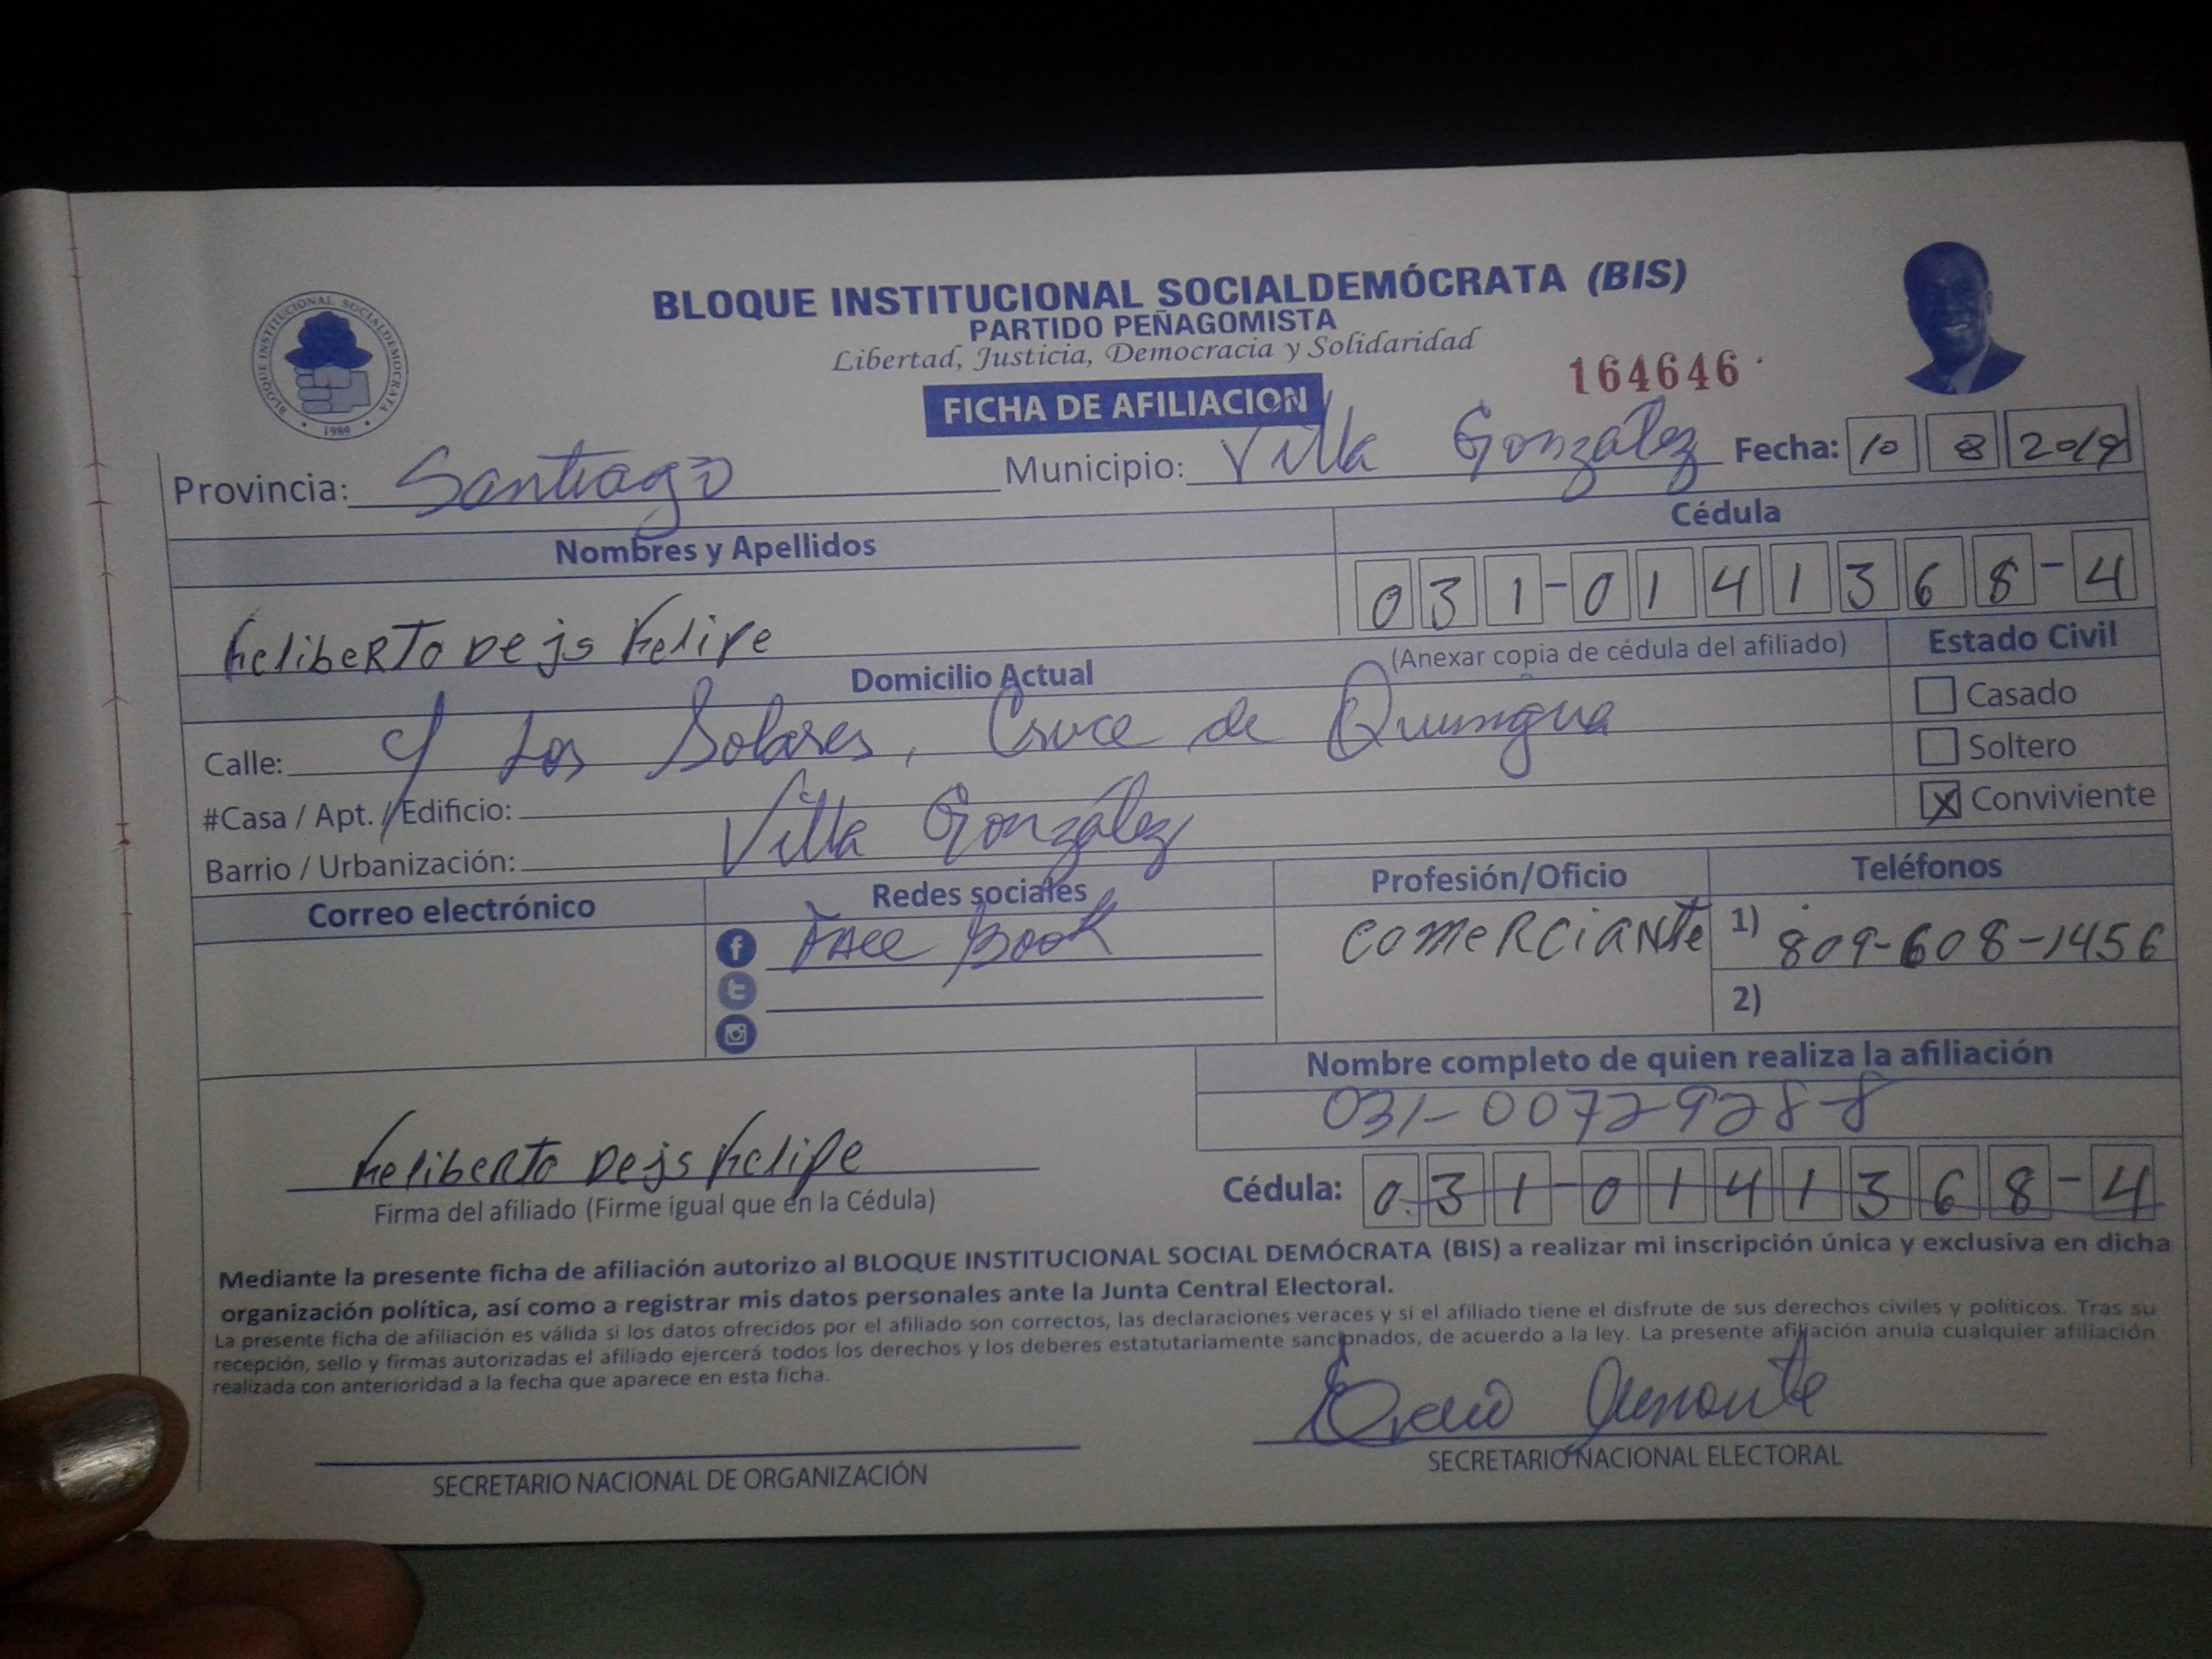 BLOQUE INSTITUCIONAL SOCIALDEMÓCRATA (BIS)
PARTIDO PEÑAGOMISTA
Libertad, Justicia, Democracia y Solidaridad
BLOQUE INSTITUCIONAL SOCIALDEMOCRATA
1989
164646
FICHA DE AFILIACION
Provincia: Santiago Municipio: Villa González Fecha: 10 8 2019
Nombres y Apellidos Cédula
Feliberto De js Felipe 031-0141368-4
(Anexar copia de cédula del afiliado) Estado Civil
Domicilio Actual
Casado
Calle: C/ Los Solares, Cruce de Quinigua
Soltero
#Casa / Apt. / Edificio:
X Conviviente
Barrio / Urbanización: Villa González
Correo electrónico Redes sociales Profesión/Oficio Teléfonos
Face Book comerciante 1) 809-608-1456
2)
Nombre completo de quien realiza la afiliación
031-0072928-8
Feliberto De js Felipe
Cédula: 031-0141368-4
Firma del afiliado (Firme igual que en la Cédula)
Mediante la presente ficha de afiliación autorizo al BLOQUE INSTITUCIONAL SOCIAL DEMÓCRATA (BIS) a realizar mi inscripción única y exclusiva en dicha
organización política, así como a registrar mis datos personales ante la Junta Central Electoral.
La presente ficha de afiliación es válida si los datos ofrecidos por el afiliado son correctos, las declaraciones veraces y si el afiliado tiene el disfrute de sus derechos civiles y políticos. Tras su
recepción, sello y firmas autorizadas el afiliado ejercerá todos los derechos y los deberes estatutariamente sancionados, de acuerdo a la ley. La presente afiliación anula cualquier afiliación
realizada con anterioridad a la fecha que aparece en esta ficha.
SECRETARIO NACIONAL DE ORGANIZACIÓN
SECRETARIO NACIONAL ELECTORAL